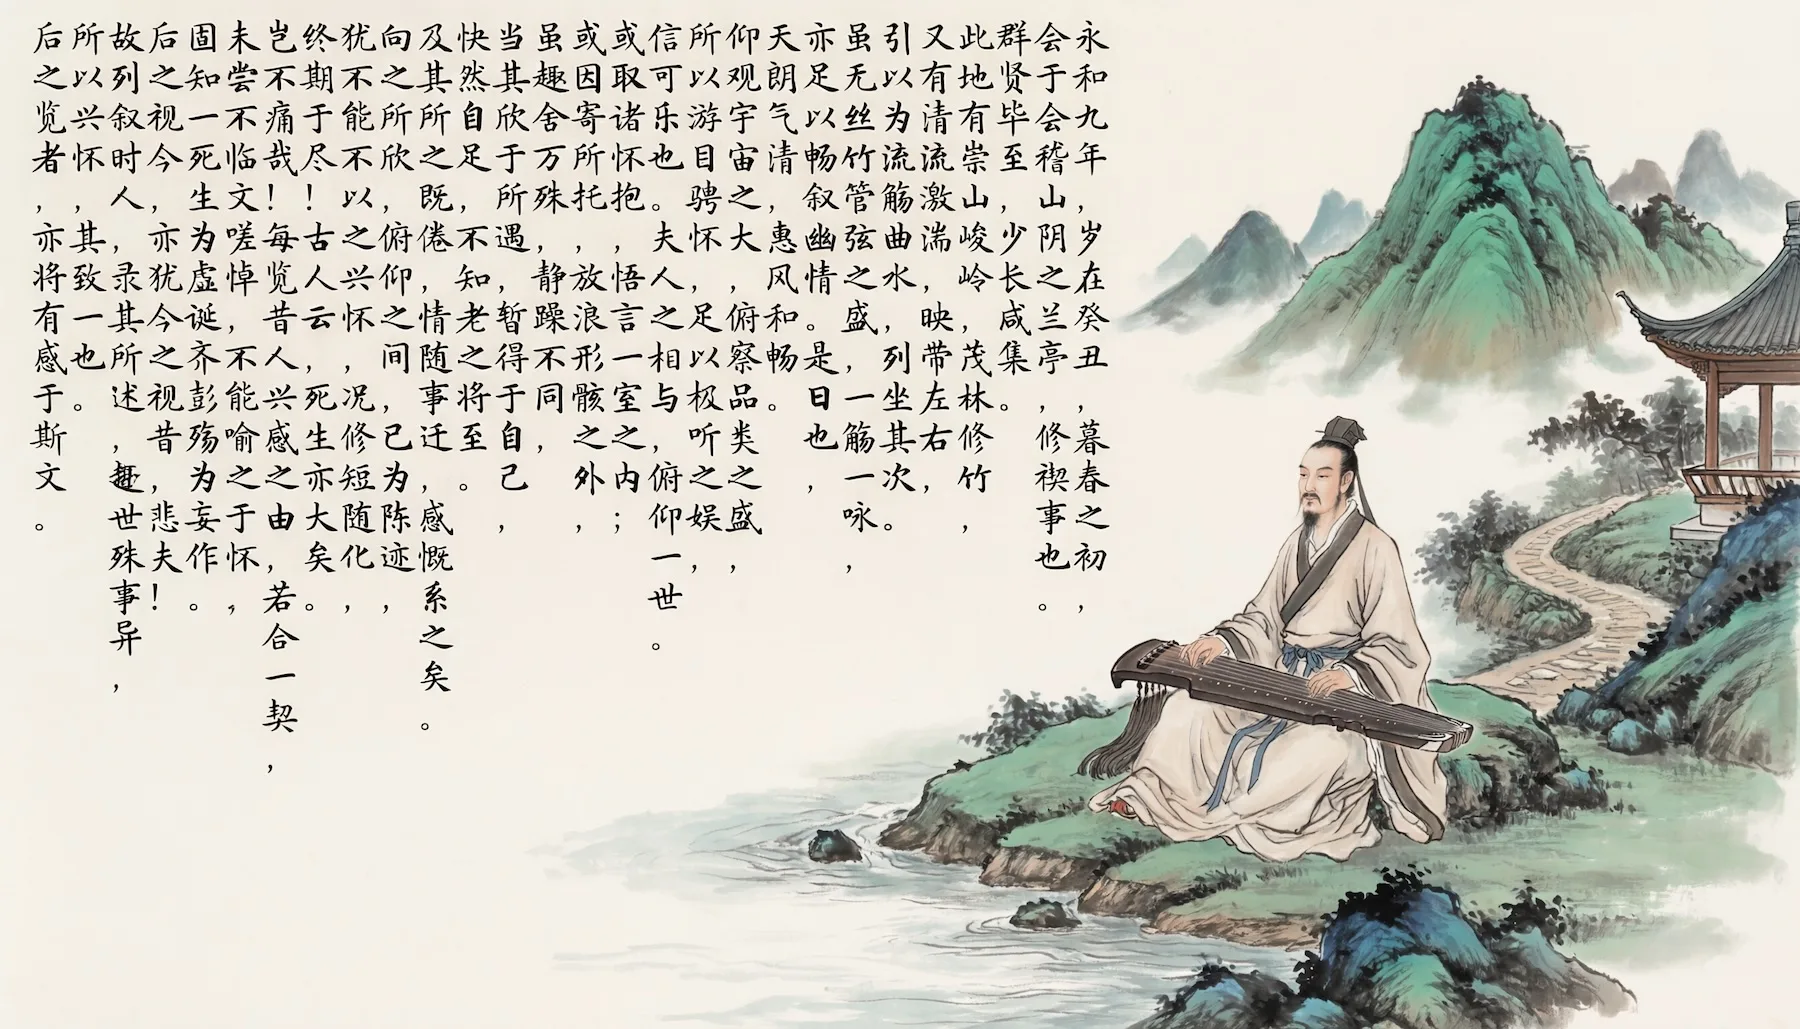 永和九年，岁在癸丑，暮春之初，
会于会稽山阴之兰亭，修禊事也。
群贤毕至，少长咸集。
此地有崇山峻岭，茂林修竹，
又有清流激湍，映带左右，
引以为流觞曲水，列坐其次。
虽无丝竹管弦之盛，一觞一咏，
亦足以畅叙幽情。是日也，
天朗气清，惠风和畅。
仰观宇宙之大，俯察品类之盛，
所以游目骋怀，足以极听之娱，
信可乐也。夫人之相与，俯仰一世。
或取诸怀抱，悟言一室之内；
或因寄所托，放浪形骸之外，
虽趣舍万殊，静躁不同，
当其欣于所遇，暂得于自己，
快然自足，不知老之将至。
及其所之既倦，情随事迁，感慨系之矣。
向之所欣，俯仰之间，已为陈迹，
犹不能不以之兴怀，况修短随化，
终期于尽！古人云，死生亦大矣。
岂不痛哉！每览昔人兴感之由，若合一契，
未尝不临文嗟悼，不能喻之于怀，
固知一死生为虚诞齐彭殇为妄作。
后之视今，亦犹今之视昔，悲夫！
故列叙时人，录其所述，世殊事异，
所以兴怀，其致一也。
后之览者，亦将有感于斯文。